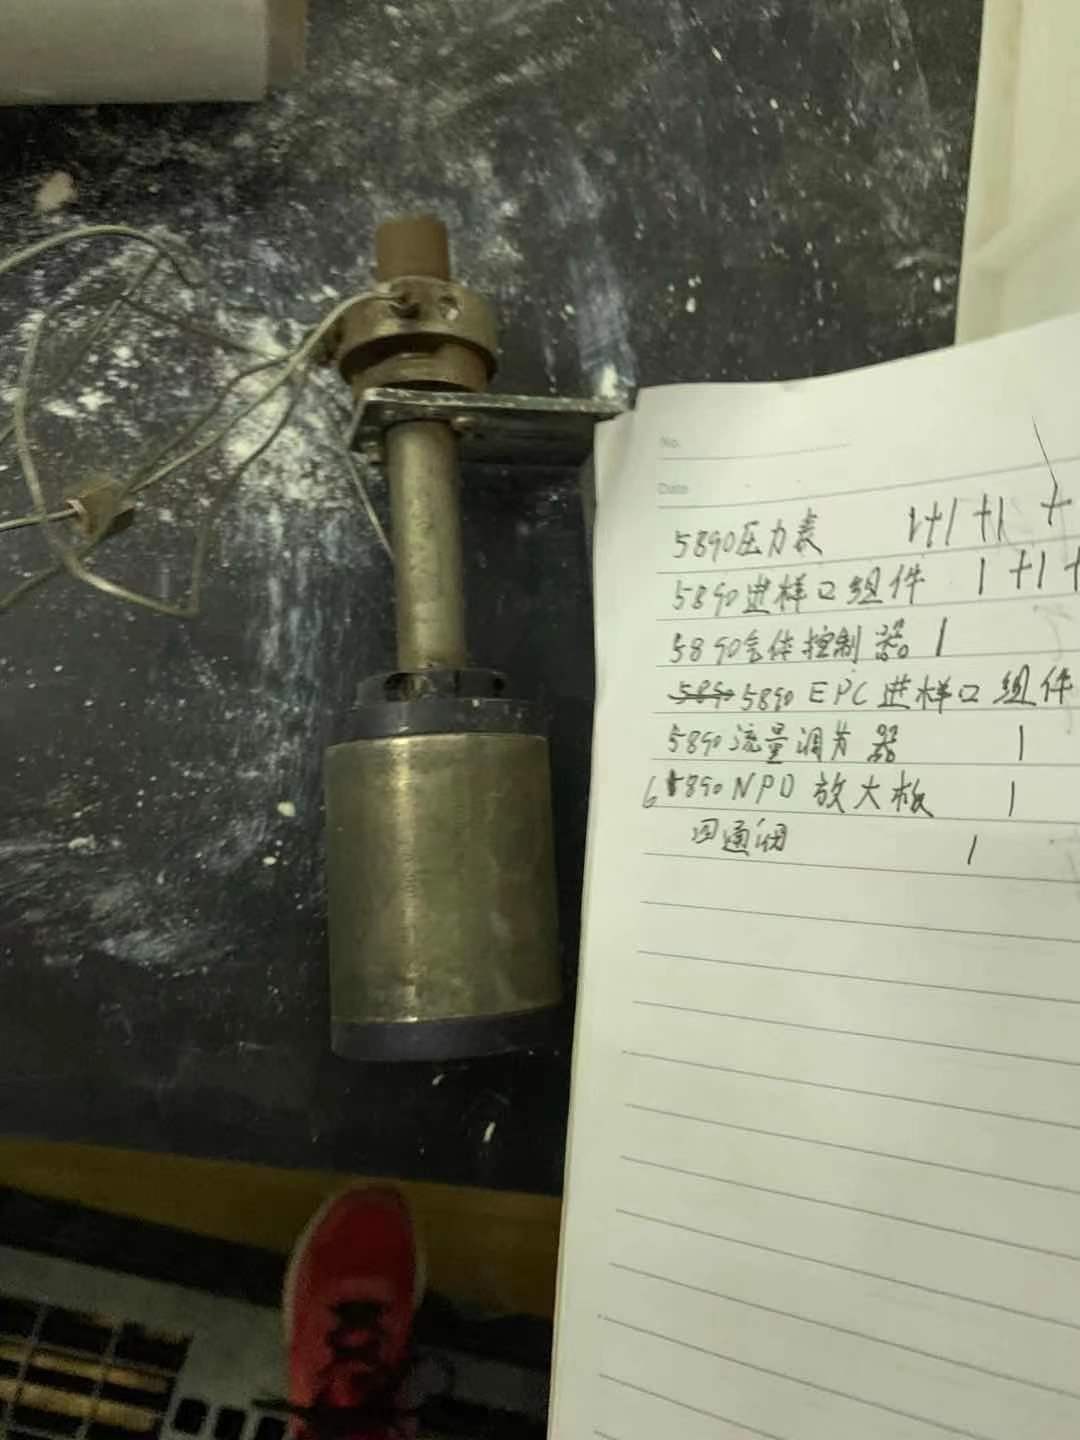 No.
Date
5890压力表 1+1+1 +
5890进样口组件 1+1+
5890气体控制器 1
5890 5890 EPC 进样口组件
5890流量调节器 1
6890 NPD 放大板 1
四通阀 1